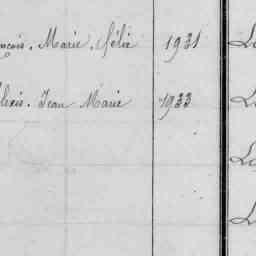 nçois. Marie. Félix 1931
lexis. Jean Marie 1933